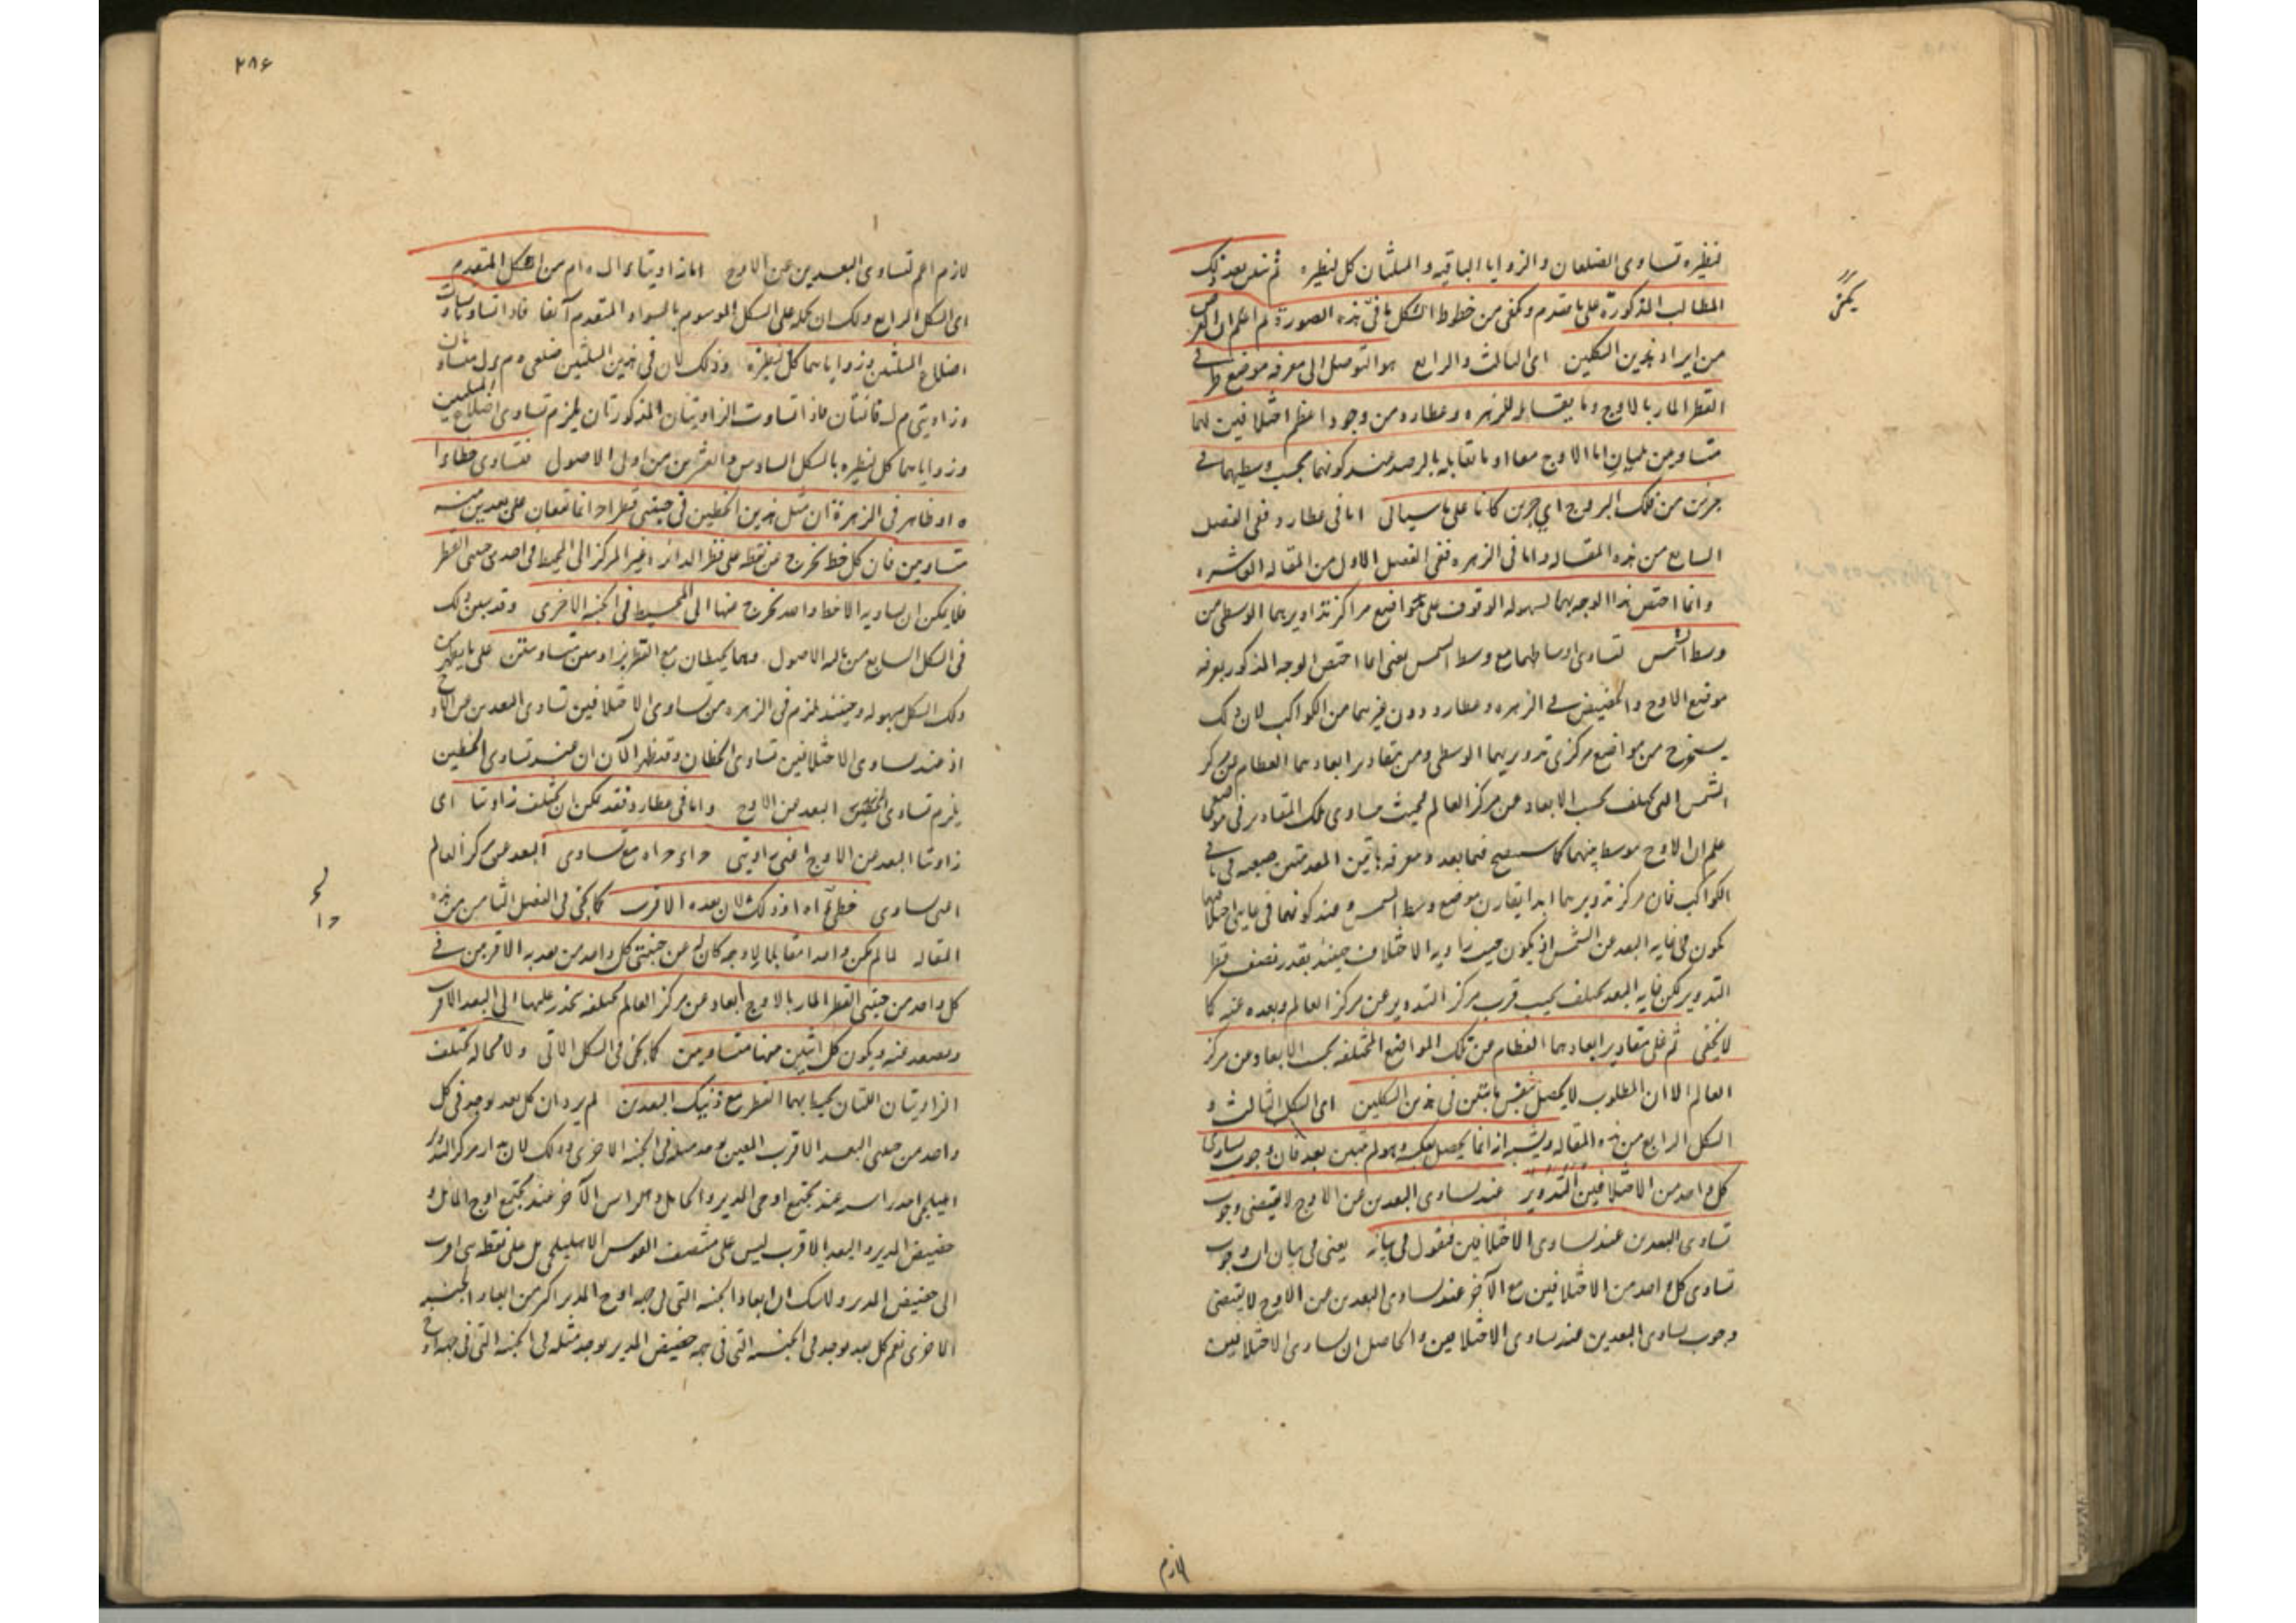 لنظيره تساوى الضلعان و الزوايا الباقيه و المثلثان كل لنظيره ثم نبين بعد ذلك
المطالب المذكورة على ما تقدم و يكفى من خطوط الشكل ما فى هذه الصورة ثم اعلم ان الغرض
من ايراد هذين الشكلين اى الثالث و الرابع هو التوصل الى معرفه موضع طرفى
القطر المار بالاوج و ما يقابله للزهره و عطارد من وجود اعظم اختلافين لهما
متساويين اما الاوج معا او ما يقابله بالرصد عند كونهما بحسب وسطيهما فى
جزئين من فلك البروج اى جزئين كانا على ما سياتى اما فى عطارد ففى الفصل
السابع من هذه المقاله و اما فى الزهره ففى الفصل الاول من المقاله العاشره
و انما اختص هذا الوجه بهما لسهوله الوقوف على مواضع مراكز تداويرهما الوسطى من
وسط الشمس لتساوى اوساطهما مع وسط الشمس يعنى انما اختص الوجه المذكور بمعرفه
موضع الاوج و الحضيض فى الزهره و عطارد دون غيرهما من الكواكب لان ذلك
يستخرج من مواضع مركزى تدويريهما الوسطى و من مقادير ابعادهما العظام من مركز
الشمس التى تختلف بحسب الابعاد عن مركز العالم بحيث تساوى تلك المقادير فى موضعين
علم ان الاوج متوسط بينهما كما سيصح فيما بعد و معرفه هاتين المقدمتين صعبه فى باقى
الكواكب فان مركز تدويريهما ابدا يقارن موضع وسط الشمس و عند كونهما فى غايتى اختلافهما
يكون فى غايه البعد عن الشمس اذ يكون جيب زاويه الاختلاف حينئذ بقدر نصف قطر
التدوير لكن غايه البعد تختلف بحسب قرب مركز التدوير من مركز العالم و بعده عنه كما
لا يخفى ثم على مقادير ابعادهما العظام عن تلك المواضع المختلفه بحسب الابعاد من مركز
العالم الا ان المطلوب لا يحصل بنفس ما تبين فى هذين الشكلين اى الشكل الثالث و
الشكل الرابع من هذه المقاله و يشبه انه انما يحصل بعكسه و هو لم يتبين بعد فان وجوب تساوى
كل واحد من الاختلافين التدوير عند تساوى البعدين من الاوج لا يقتضى وجوب
تساوى البعدين عند تساوى الاختلافين فنقول فى بيانه يعنى فى بيان ان وجوب
تساوى كل واحد من الاختلافين مع الآخر عند تساوى البعدين من الاوج لا يقتضى
وجوب تساوى البعدين عند تساوى الاختلافين و الحاصل ان تساوى الاختلافين
لازم
٢٨٦
لازم اعم لتساوى البعدين عن الاوج اما زاويتا من الشكل المتقدم
اى الشكل الرابع و لك ان تحمله على الشكل الموسوم بالسواد المتقدم آنفا فاذا تساويا تساوت
اضلاع المثلثين و زواياهما كل لنظيره و ذلك لان فى هذين المثلثين ضلعى متساويان
و زاويتى قائمتان فاذا تساوت الزاويتان المذكورتان يلزم تساوى اضلاع المثلثين
و زواياهما كل لنظيره بالشكل السادس و العشرين من اولى الاصول فتساوى خطا
ه اه و ظاهر فى الزهرة ان مثل هذين الخطين فى جنبتى قطر انما تقعان على بعدين منه
متساويين فان كل خط يخرج من نقطه على قطر الدائره غير المركز الى المحيط فى احدى جنبتى القطر
فلا يمكن ان يساويه الا خط واحد يخرج منها الى المحيط فى الجنبه الاخرى و قد تبين ذلك
فى الشكل السابع من ثالثه الاصول و هما يحيطان مع القطر بزاويتين متساويتين على ما يظهر من
ذلك الشكل بسهوله و حينئذ يلزم فى الزهره من تساوى الاختلافين تساوى البعدين من الاوج
اذ عند تساوى الاختلافين تساوى الخطان و قد ظهر الآن ان عند تساوى الخطين
يلزم تساوى البعد من الاوج و اما فى عطارد فقد يمكن ان تختلف زاويتا اى
زاويتا البعد من الاوج اعنى زاويتى مع تساوى البعد عن مركز العالم
اعنى تساوى خطى و ذلك لان بعده الاقرب كما يجئ فى الفصل الثامن من هذه
المقاله لما لم يكن واحدا مقابلا لاوجه كان له عن جنبتى كل واحد من بعديه الاقربين فى
كل واحد من جنبتى القطر المار بالاوج ابعاد عن مركز العالم مختلفه ينحدر عليها الى البعد الاقرب
و يصعد عنه و يكون كل اثنين منها متساويين كما يجئ فى الشكل الآتى و لا محاله تختلف
الزاويتان اللتان يحيط بهما القطر مع ذينك البعدين لم يرد ان كل بعد يوجد فى كل
واحد من جنبتى البعد الاقرب المعين يوجد مثله فى الجنبه الاخرى و ذلك لان مدار مركز التدوير
اهليلجى احد راسيه عند مجتمع اوجى المدير و الحامل و الراس الآخر عند مجتمع اوج الحامل و
حضيض المدير و البعد الاقرب ليس على منتصف القوس الاهليلجى بل على نقطه هى اقرب
الى حضيض المدير و لا شك ان ابعاد الجنبه التى فى جهه اوج المدير اكثر من ابعاد الجنبه
الاخرى نعم كل بعد يوجد فى الجنبه التى فى جهه حضيض المدير يوجد مثله فى الجنبه التى فى جهه اوج